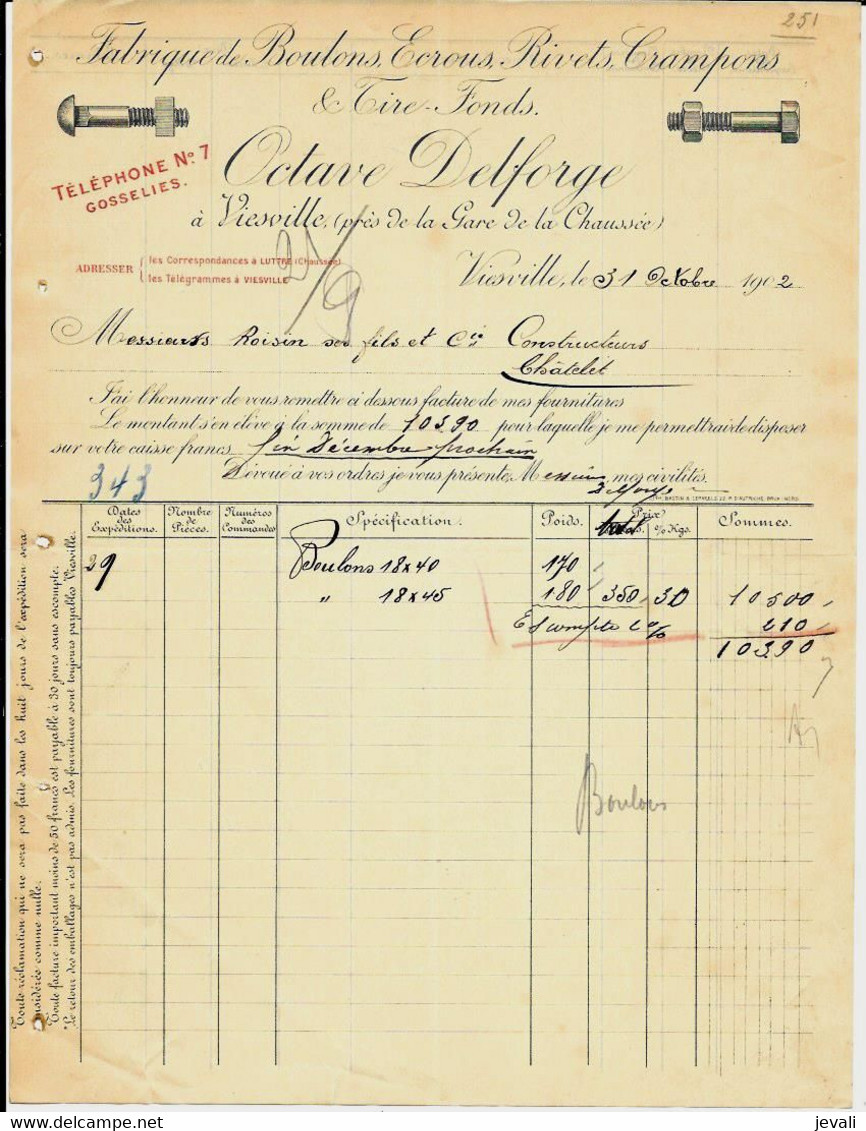 251
Fabrique de Boulons, Ecrous, Rivets, Crampons
& Tire-Fonds.
TÉLÉPHONE No. 7
GOSSELIES.
Octave Delforge
à Viesville, (près de la Gare de la Chaussée)
ADRESSER
les Correspondances à LUTTRE (Chaussée)
les Télégrammes à VIESVILLE
Viesville, le 31 Octobre 1902
Messieurs Roisin ses fils et Cie Constructeurs
Châtelet
J'ai l'honneur de vous remettre ci dessous facture de mes fournitures
Le montant s'en élève à la somme de 103.90 pour laquelle je me permettrai de disposer
sur votre caisse francs fin Décembre prochain
Dévoué à vos ordres je vous présente, Messieurs mes civilités.
Delforge
343
Dates des Expéditions. Nombre de Pièces. Numéros des Commandes Spécification. Poids. Prix % Kgs. Sommes.
29 Boulons 18 x 40 170
" 18 x 45 180 350 30 10500
Escompte 2 % 210
10290
Boulons
Toute réclamation qui ne sera pas faite dans les huit jours de l'expédition sera
considérée comme nulle.
Toute facture important moins de 50 francs est payable à 30 jours sans escompte.
Le retour des emballages n'est pas admis. Les fournitures sont toujours payables Viesville.
jevali